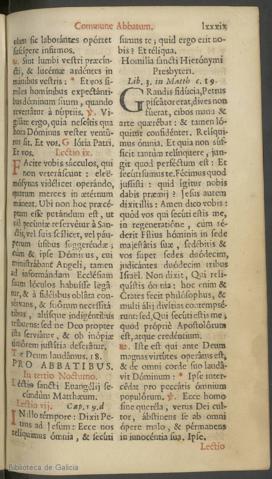 Commune Abbatum. lxxxix
olum sic laborantes opórtet
suscípere infirmos.
℟. Sint lumbi vestri præcín-
cti, & lucérnæ ardéntes in
mánibus vestris: * Et vos sí-
miles homínibus expectánti-
bus dóminum suum, quando
revertátur à núptijs. ℣. Vi-
giláte ergo, quia nescítis qua
hora Dóminus vester ventú-
rus sit. Et vos. Glória Patri.
Et vos. Lectio ix.
Fácite vobis sácculos, qui
non veteráscunt: ele-
mósynas vidélicet operándo,
quarum merces in ætérnum
máneat. Ubi non hoc præcé-
ptum esse putándum est, ut
nil pecúniæ reservétur à San-
ctis, vel suis scílicet, vel páu-
perum úsibus suggeréndæ;
cum & ipse Dóminus, cui
ministrábant Angeli, tamen
ad informándam Ecclésiam
suam lóculos habuísse legá-
tur, & à fidélibus obláta con-
sérvans, & suórum necessitá-
tibus, aliísque indigéntibus
tríbuens: sed ne Deo propter
ista serviátur, & ob inópiæ
timórem justítia deserátur.
Te Deum laudámus. 18.
PRO ABBATIBUS.
In tertio Nocturno.
Léctio sancti Evangélij se-
cúndum Matthæum.
Lectio vij. Cap. 19. d
IN illo témpore: Dixit Pe-
trus ad Jesum: Ecce nos
relíquimus ómnia, & secúti
sumus te; quid ergo erit no-
bis? Et réliqua.
Homilía sancti Hierónymi
Presbyteri.
Lib. 3. in Matth. c. 19.
GRandis fidúcia, Petrus
piscátor erat, dives non
fúerat, cibos manu &
arte quærébat: & tamen ló-
quitur confidénter. Relíqui-
mus ómnia. Et quia non suf-
ficit tantùm relínquere, jun-
git quod perféctum est: Et
secúti sumus te. Fécimus quod
jussísti: quid ígitur nobis
dabis præmij? Jesus autem
dixit illis: Amen dico vobis:
quòd vos qui secúti estis me,
in regeneratióne, cum sé-
derit Fílius hóminis in sede
majestátis suæ, sedébitis &
vos super sedes duódecim,
judicántes duódecim tribus
Israël. Non dixit, Qui relí-
quístis ómnia: hoc enim &
Crates fecit philósophus, &
multi álij divítias contempsé-
runt: sed, Qui secúti estis me,
quod próprie Apostolórum
est, atque credéntium.
℟. Iste est qui ante Deum
magnas virtútes operátus est,
& de omni corde suo laudá-
vit Dóminum: * Ipse inter-
cédat pro peccátis ómnium
populórum. ℣. Ecce homo
sine queréla, verus Dei cul-
tor, ábstinens se ab omni
ópere malo, & pérmanens
in innocéntia sua. Ipse.
Lectio
Biblioteca de Galicia